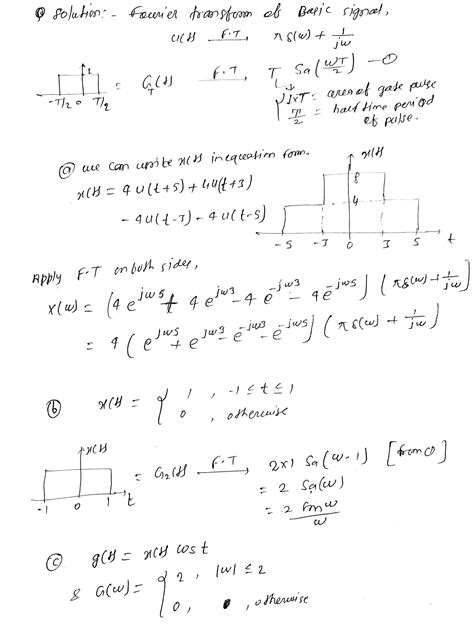 Q Solution:- Fourier transform of Basic signal,
u(t) F.T, πδ(ω) + 1/jω
1
-T/2 0 T/2 = G_T(t) F.T, T Sa(ωT/2) —①
1×T = area of gate pulse
T/2 = half time period of pulse.
ⓐ we can write x(t) in equation form.
x(t) = 4u(t+5) + 4u(t+3)
- 4u(t-3) - 4u(t-5)
x(t)
8
4
-5 -3 0 3 5 t
Apply F.T on both sides,
X(ω) = (4e^{jω5} + 4e^{jω3} - 4e^{-jω3} - 4e^{-jω5}) (πδ(ω) + 1/jω)
= 4(e^{jω5} + e^{jω3} - e^{-jω3} - e^{-jω5}) (πδ(ω) + 1/jω)
ⓑ x(t) = { 1, -1 ≤ t ≤ 1
0, otherwise
x(t)
-1 0 1 t = G_2(t) F.T 2×1 Sa(ω·1) [from ①]
= 2 Sa(ω)
= 2 sinω/ω
ⓒ g(t) = x(t) cost
& G(ω) = { 2, |ω| ≤ 2
0, , otherwise